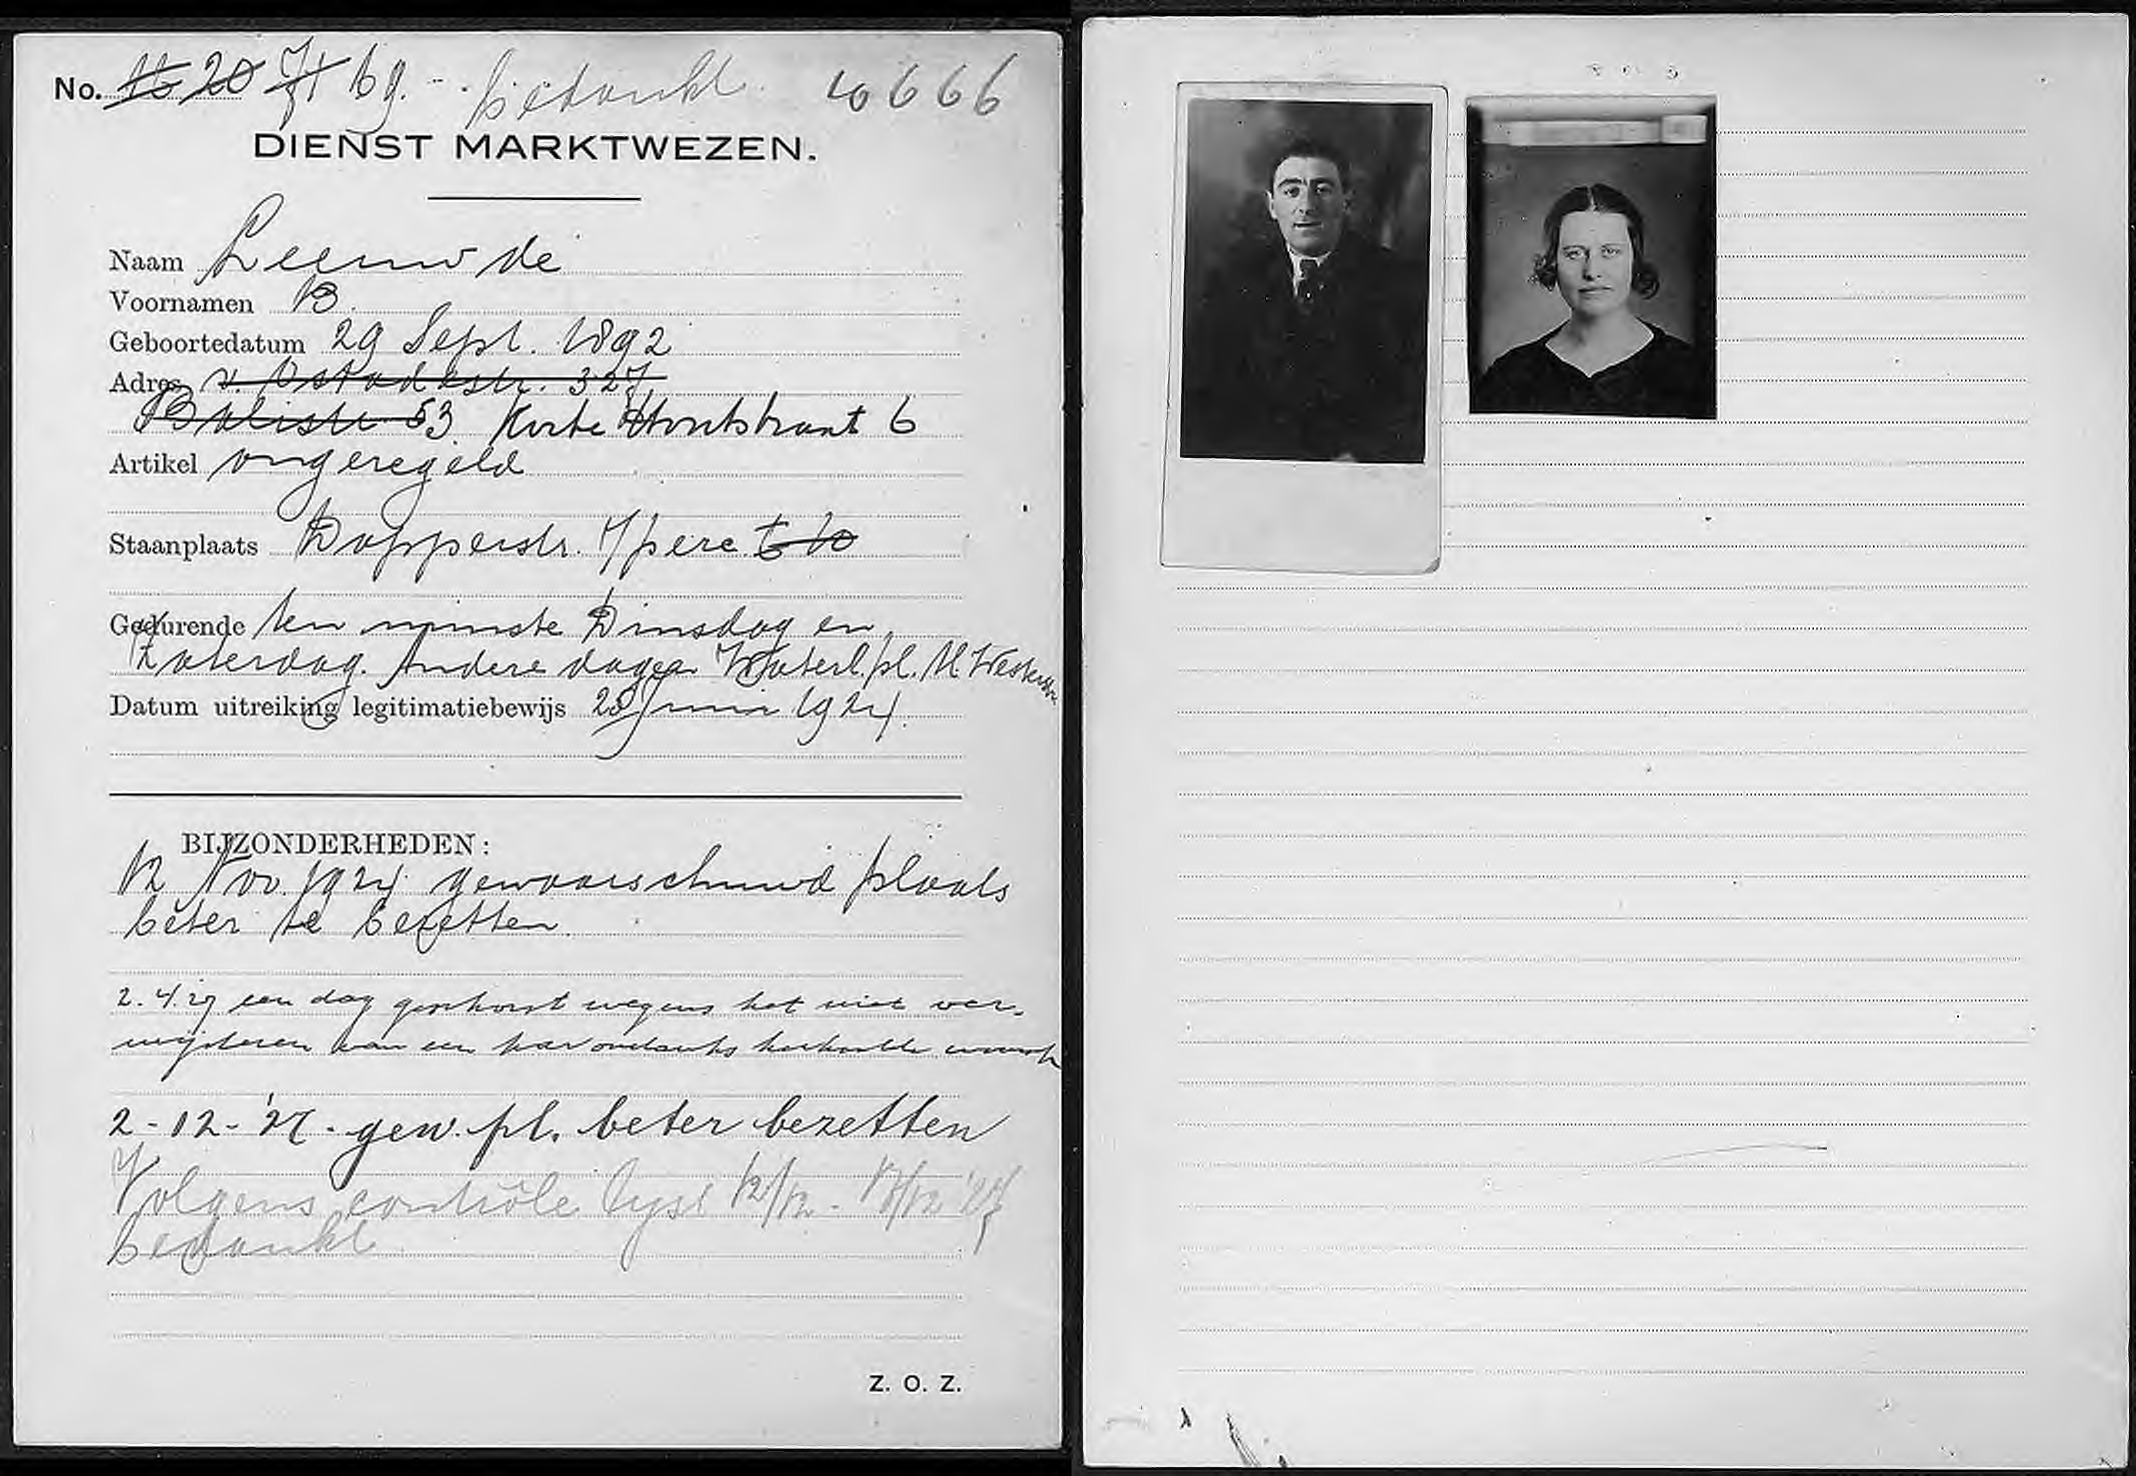 No. 16 20 71 69. - . bedankt. 10666
DIENST MARKTWEZEN.
Naam Leeuw de
Voornamen B.
Geboortedatum 29 Sept. 1892
Adres v. Ostadestr. 327
Balistr 53. Korte Houtstraat 6
Artikel ongeregeld
Staanplaats Dapperstr.
Gedurende ten minste Dinsdag en
Zaterdag. Andere dagen Waterl. pl.
Datum uitreiking legitimatiebewijs 28 Juni 1924.
BIJZONDERHEDEN:
12 Nov. 1924 gewaarschuwd plaats
beter te bezetten.
2.4.27 een dag geschorst wegens het niet ver-
wijderen van een kar ondanks herhaalde
2-12-'27. gew. pl. beter bezetten
Volgens contrôle lijst 12/12 - '27
bedankt
Z. O. Z.